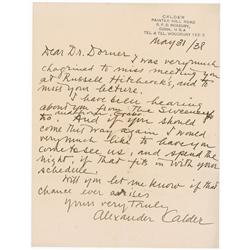 CALDER
PAINTER HILL ROAD
R.F.D. ROXBURY
CONN. U.S.A
TEL. & TEL. WOODBURY 122-2
May 31/38
Dear Dr. Dorner
I was very much
chagrined to miss meeting you
at Russell Hitchcock's, and to
miss your lecture.
I have been hearing
about you from the Sweeneys
too. And if you should
come this way again I would
very much like to have you
come to see us, and spend the
night, if that fits in with your
schedule.
Will you let me know if that
chance ever arises
Yours very truly,
Alexander Calder